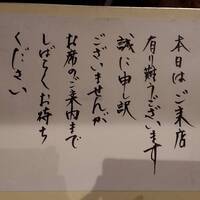 本日はご来店
有り難うございます
誠に申し訳
ございませんが
お席のご案内まで
しばらくお待ち
ください